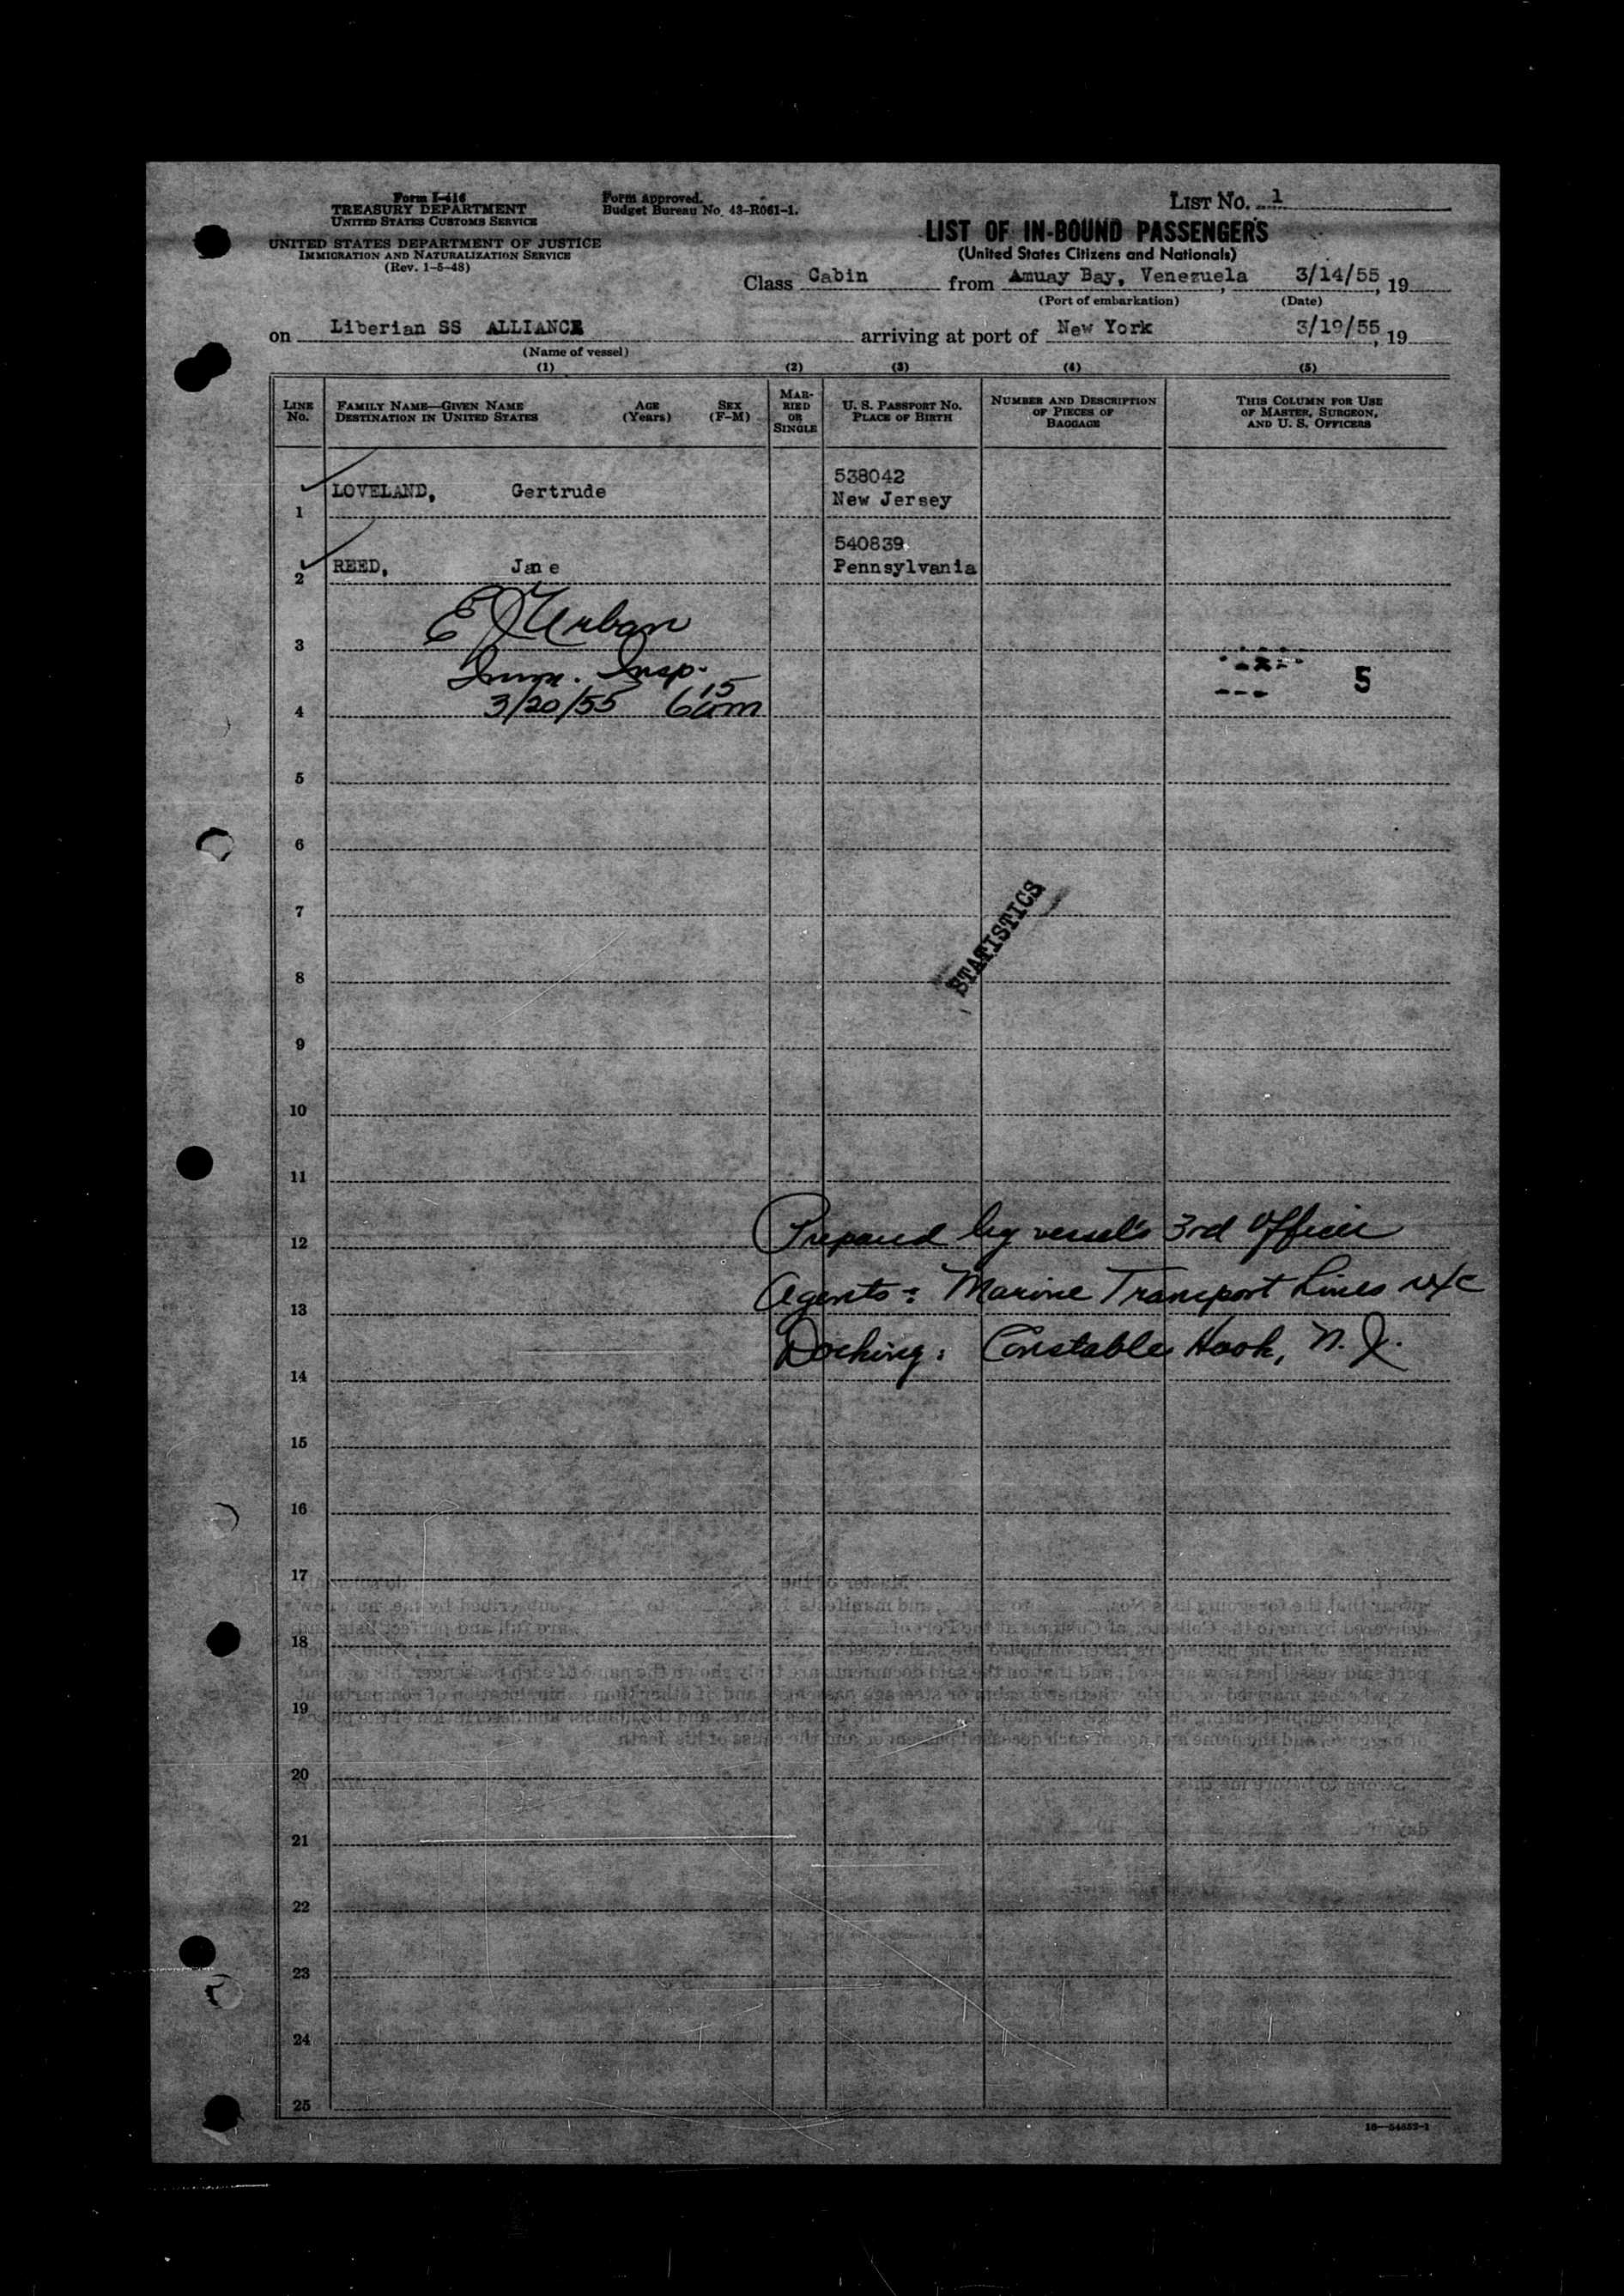 Form I-416
TREASURY DEPARTMENT
UNITED STATES CUSTOMS SERVICE
UNITED STATES DEPARTMENT OF JUSTICE
IMMIGRATION AND NATURALIZATION SERVICE
(Rev. 1-5-48)
Form approved.
Budget Bureau No. 43-R061-1.
LIST NO. 1
LIST OF IN-BOUND PASSENGERS
(United States Citizens and Nationals)
Class Cabin from Amuay Bay, Venezuela, 3/14/55, 19
(Port of embarkation) (Date)
on Liberian SS ALLIANCE arriving at port of New York 3/19/55, 19
(Name of vessel)
(1) (2) (3) (4) (5)
LINE No.
FAMILY NAME—GIVEN NAME
DESTINATION IN UNITED STATES
AGE (Years)
SEX (F-M)
MARRIED OR SINGLE
U. S. PASSPORT NO.
PLACE OF BIRTH
NUMBER AND DESCRIPTION OF PIECES OF BAGGAGE
THIS COLUMN FOR USE OF MASTER, SURGEON, AND U. S. OFFICERS
538042
LOVELAND, Gertrude New Jersey
1
540839
REED, Jane Pennsylvania
2
E J Urban
3
Imm. Insp.
5
3/20/55 6 15 am
4
5
6
7
STATISTICS
8
9
10
11
Prepared by vessel's 3rd Officer
12
Agents: Marine Transport Lines
13
Docking: Constable Hook, N. J.
14
15
16
17
18
19
20
21
22
23
24
25